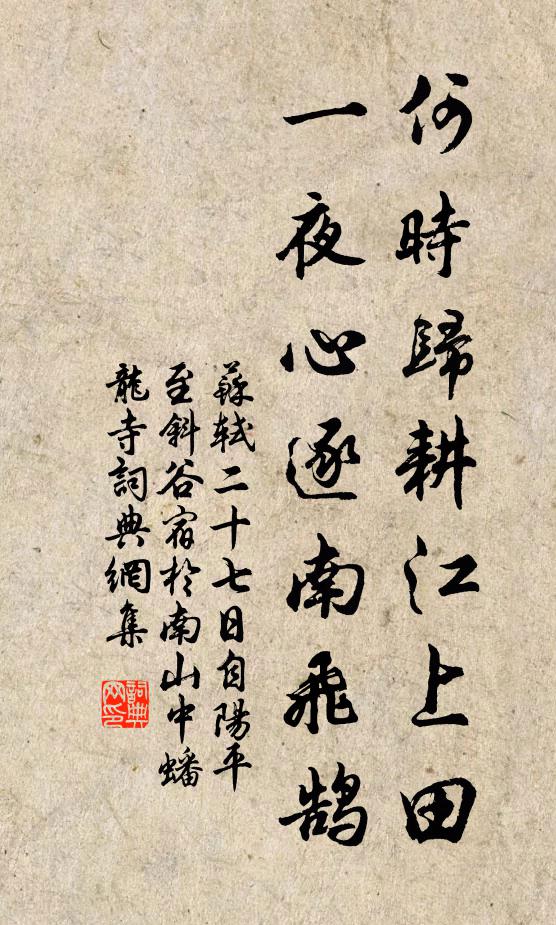 何時歸耕江上田
一夜心逐南飛鵠
蘇軾二十七日自陽平
至斜谷宿於南山中蟠
龍寺詞典網集
詞典網印